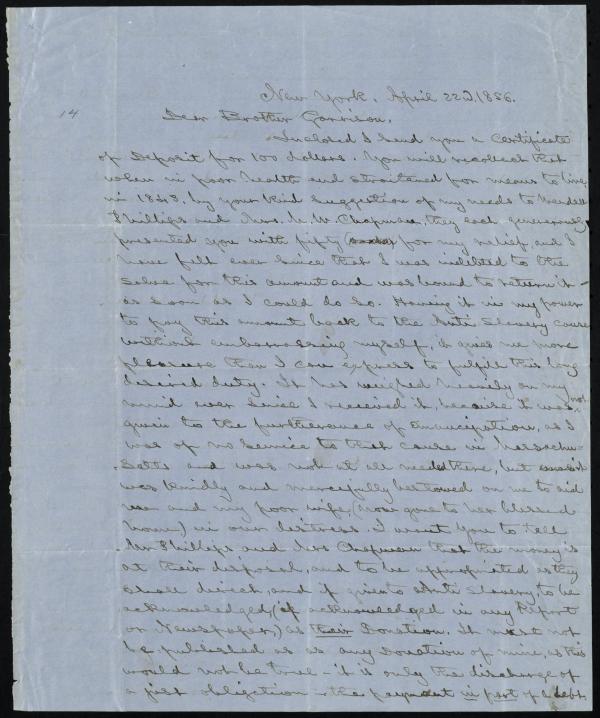 New York, April 22d, 1856.
14
Dear Brother Garrison,
Inclosed I send you a Certificate
of Deposit for 100 dollars. You will recollect that
when in poor health and straitened for means to live,
in 1843, by your kind suggestion of my needs to Wendell
Phillips and Mrs. M. W. Chapman, they each generously
presented you with fifty for my relief, and I
have felt ever since that I was indebted to the
for this amount and was bound to return it
as soon as I could do so. Having it in my power
to pay this amount back to the Anti Slavery cause
without embarrassing myself, it gives me more
pleasure than I can express to fulfill this long
desired duty. It has weighed heavily on my
mind ever since I received it, because it was not
given to the furtherance of emancipation, as I
was of no service to that cause in Massachu-
setts and was not at all needed there, but
was kindly and mercifully bestowed on me to aid
me and my poor wife, (now gone to her blessed
home) in our distress. I want you to tell
Mr Phillips and Mrs Chapman that the money is
at their disposal, and to be appropriated as they
shall direct, and if given to Anti Slavery, to be
acknowledged, (if acknowledged in any Report
or Newspaper,) as their Donation. It must not
be published as any Donation of mine, as this
would not be true - it is only the discharge of
a just obligation - the payment in part of a debt.